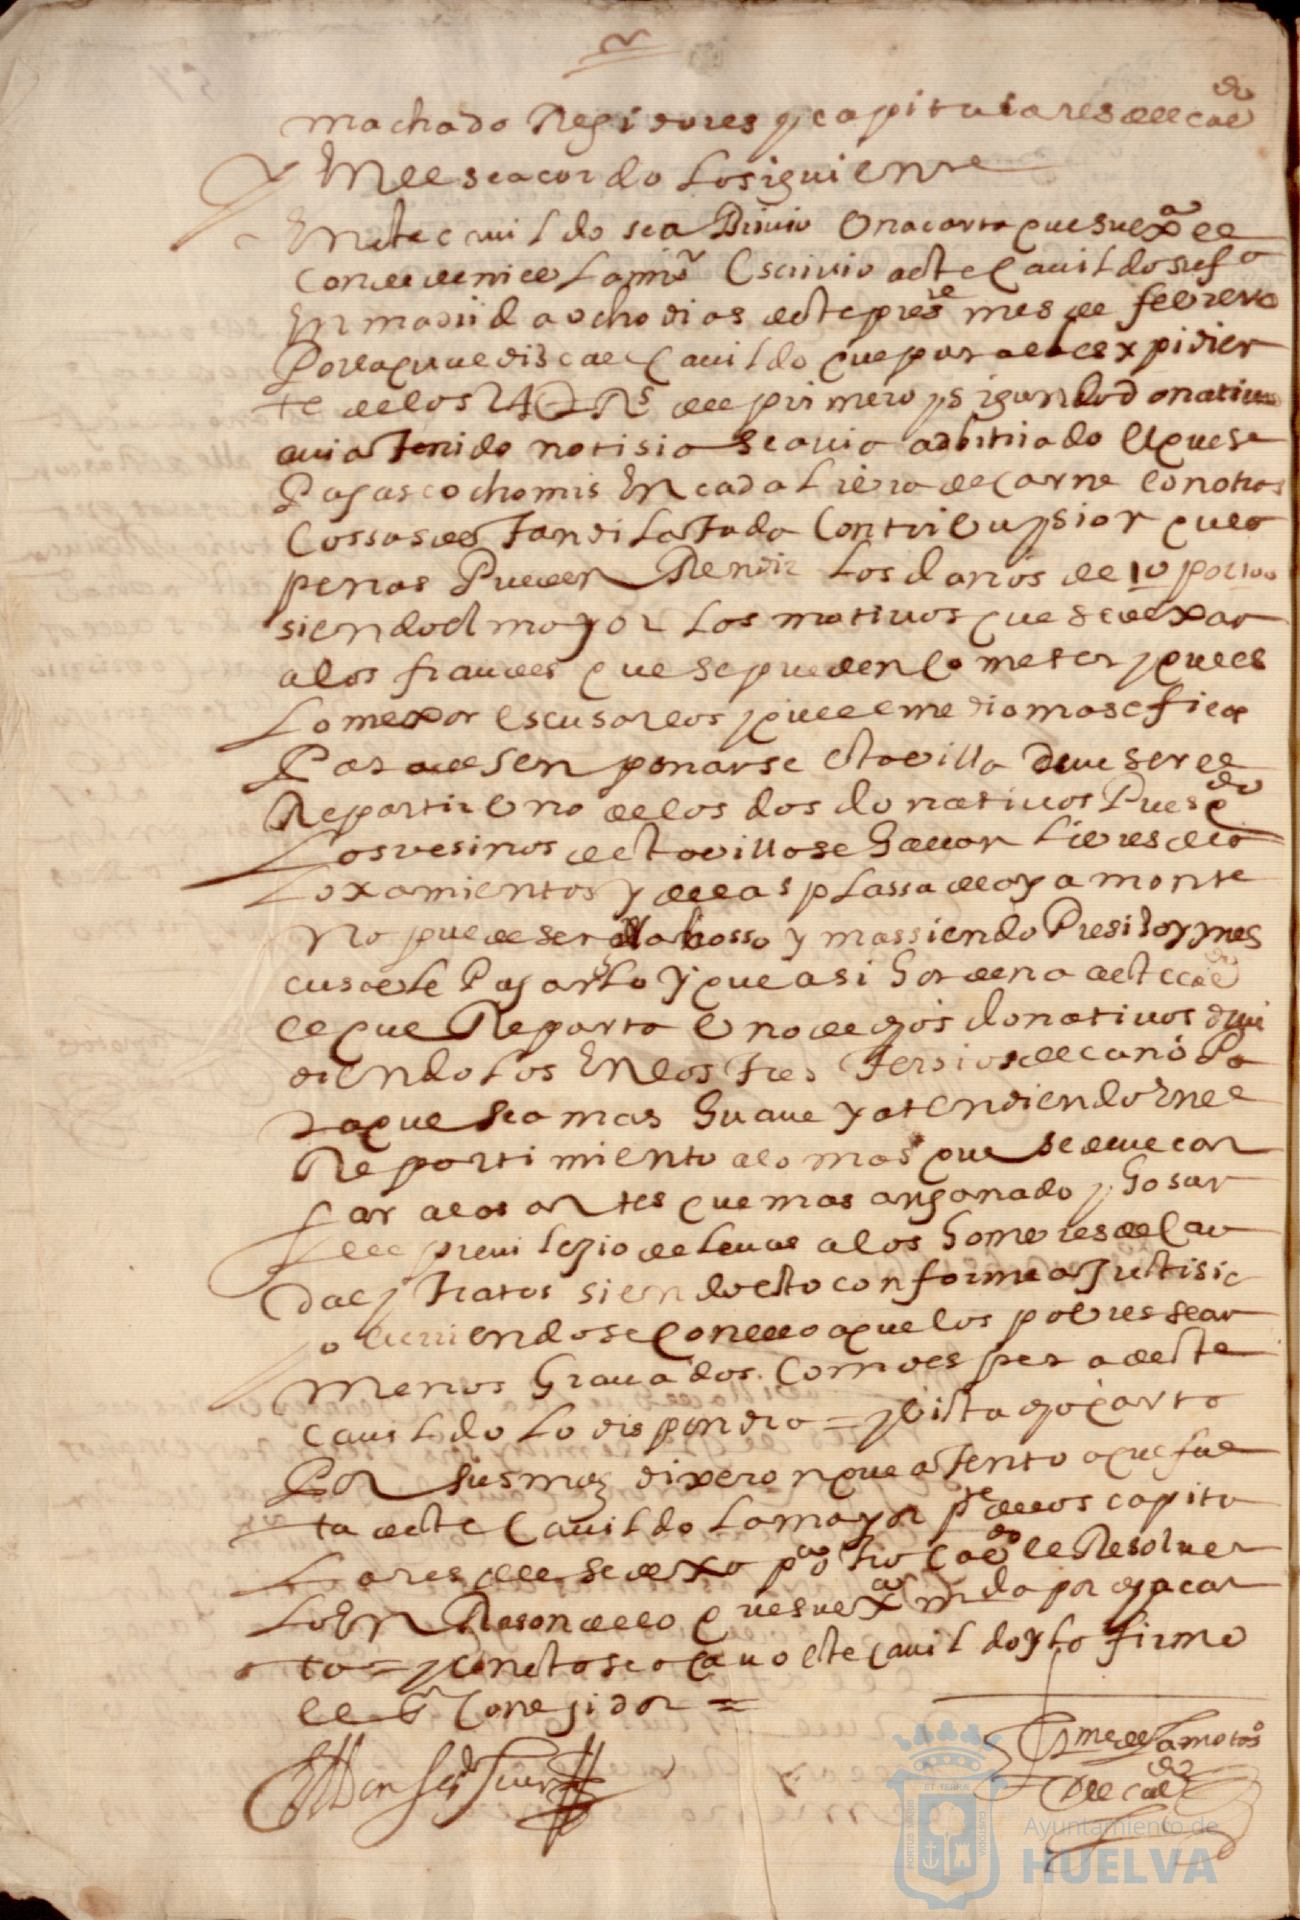 machado Regidores y capitulares deel cavdo
En el se acordo lo siguiente
En este cavildo sea Bisto Una carta que su exa el
Conde de niebla mi sr Escrivio a este Cavildo su fha
En madrid a ocho dias deste presте mes de febrero
Por la qual dise al Cavildo que para el expidien
te de los Rs del primero y segundo donativo
avia tenido notisia se avia adbitriado el que se
Pagasco ocho mrs En cada Libra de Carne con otras
Cossas de tan dilatada Contribuysion que a
penas Pueden Rendir Los danos de 10 por 100
siendo el mayor Los motivos que se dexan
a los fraudes que se pueden Cometer y que es
Lo mexor escusarlos y que el medio mas eficas
Para desenpenarse esta villa Deve ser el
Repartir Uno de los dos donativos Pues qdo
Los vesinos de esta villa se Hallan Libres de a
Loxamientos y de las plassa de ayamonte
No puede ser y mas siendo Presiso y ynes
cusable Pagarlo y que asi Hordena a este cavdo
el que Reparta Uno de dhos donativos divi
diendolos En los tres Tersios del ano Pa
ra que sea mas Suave y atendiendo En el
Repartimiento a lo mas que se deve car
gar a los que mas an ganado y Gosan
del previlegio de levas a los Hombres de Cau
dal y tratos siendo esto conforme a Justisia
y lo que los pobres sean
Menos Gravados. Como espera de este
Cavildo Lo dispondra = y vista dha carta
Por sus mds dixeron que atento a que fal
ta a este Cavildo La mayor pte de los capitu
Lares del se dexa pa otro Cavdo el Resolver
Lo En Rason de lo que su exa manda por dha car
ta = y con esto se acavo este Cavildo y lo firmo
el Sr Corregidor =
Ayuntamiento de
HUELVA